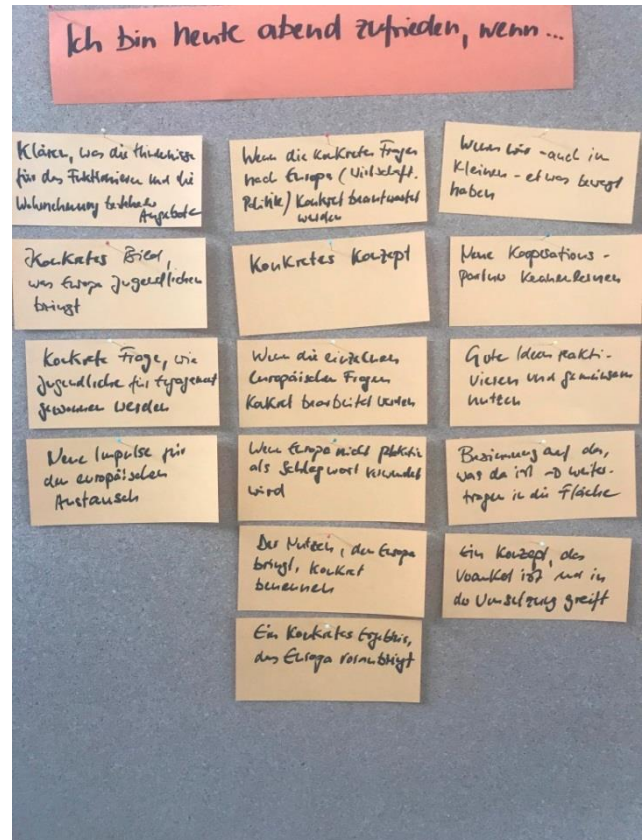 Ich bin heute abend zufrieden, wenn...
Klären, was die
für das Funktionieren und die
Wahrnehmung bestehender
Angebote
Konkretes Bild,
was Europa Jugendlichen
bringt
Konkrete Frage, wie
Jugendliche für Engagement
gewonnen werden
Neue Impulse für
den europäischen
Austausch
Wenn die konkreten Fragen
nach Europa (Wirtschaft.
Politik) konkret beantwortet
werden
Konkretes Konzept
Wenn die einzelnen
europäischen Fragen
konkret bearbeitet werden
Wenn Europa nicht plakativ
als Schlagwort verwendet
wird
Der Nutzen, den Europa
bringt, konkret
benennen
Ein konkretes Ergebnis,
das Europa voranbringt
Wenn wir - auch im
Kleinen - etwas bewegt
haben
Neue Kooperations-
partner kennenlernen
Gute Ideen reakti-
vieren und gemeinsam
nutzen
Beziehung auf das,
was da ist → weiter-
tragen in die Fläche
Ein Konzept, das
ist und in
der Umsetzung greift